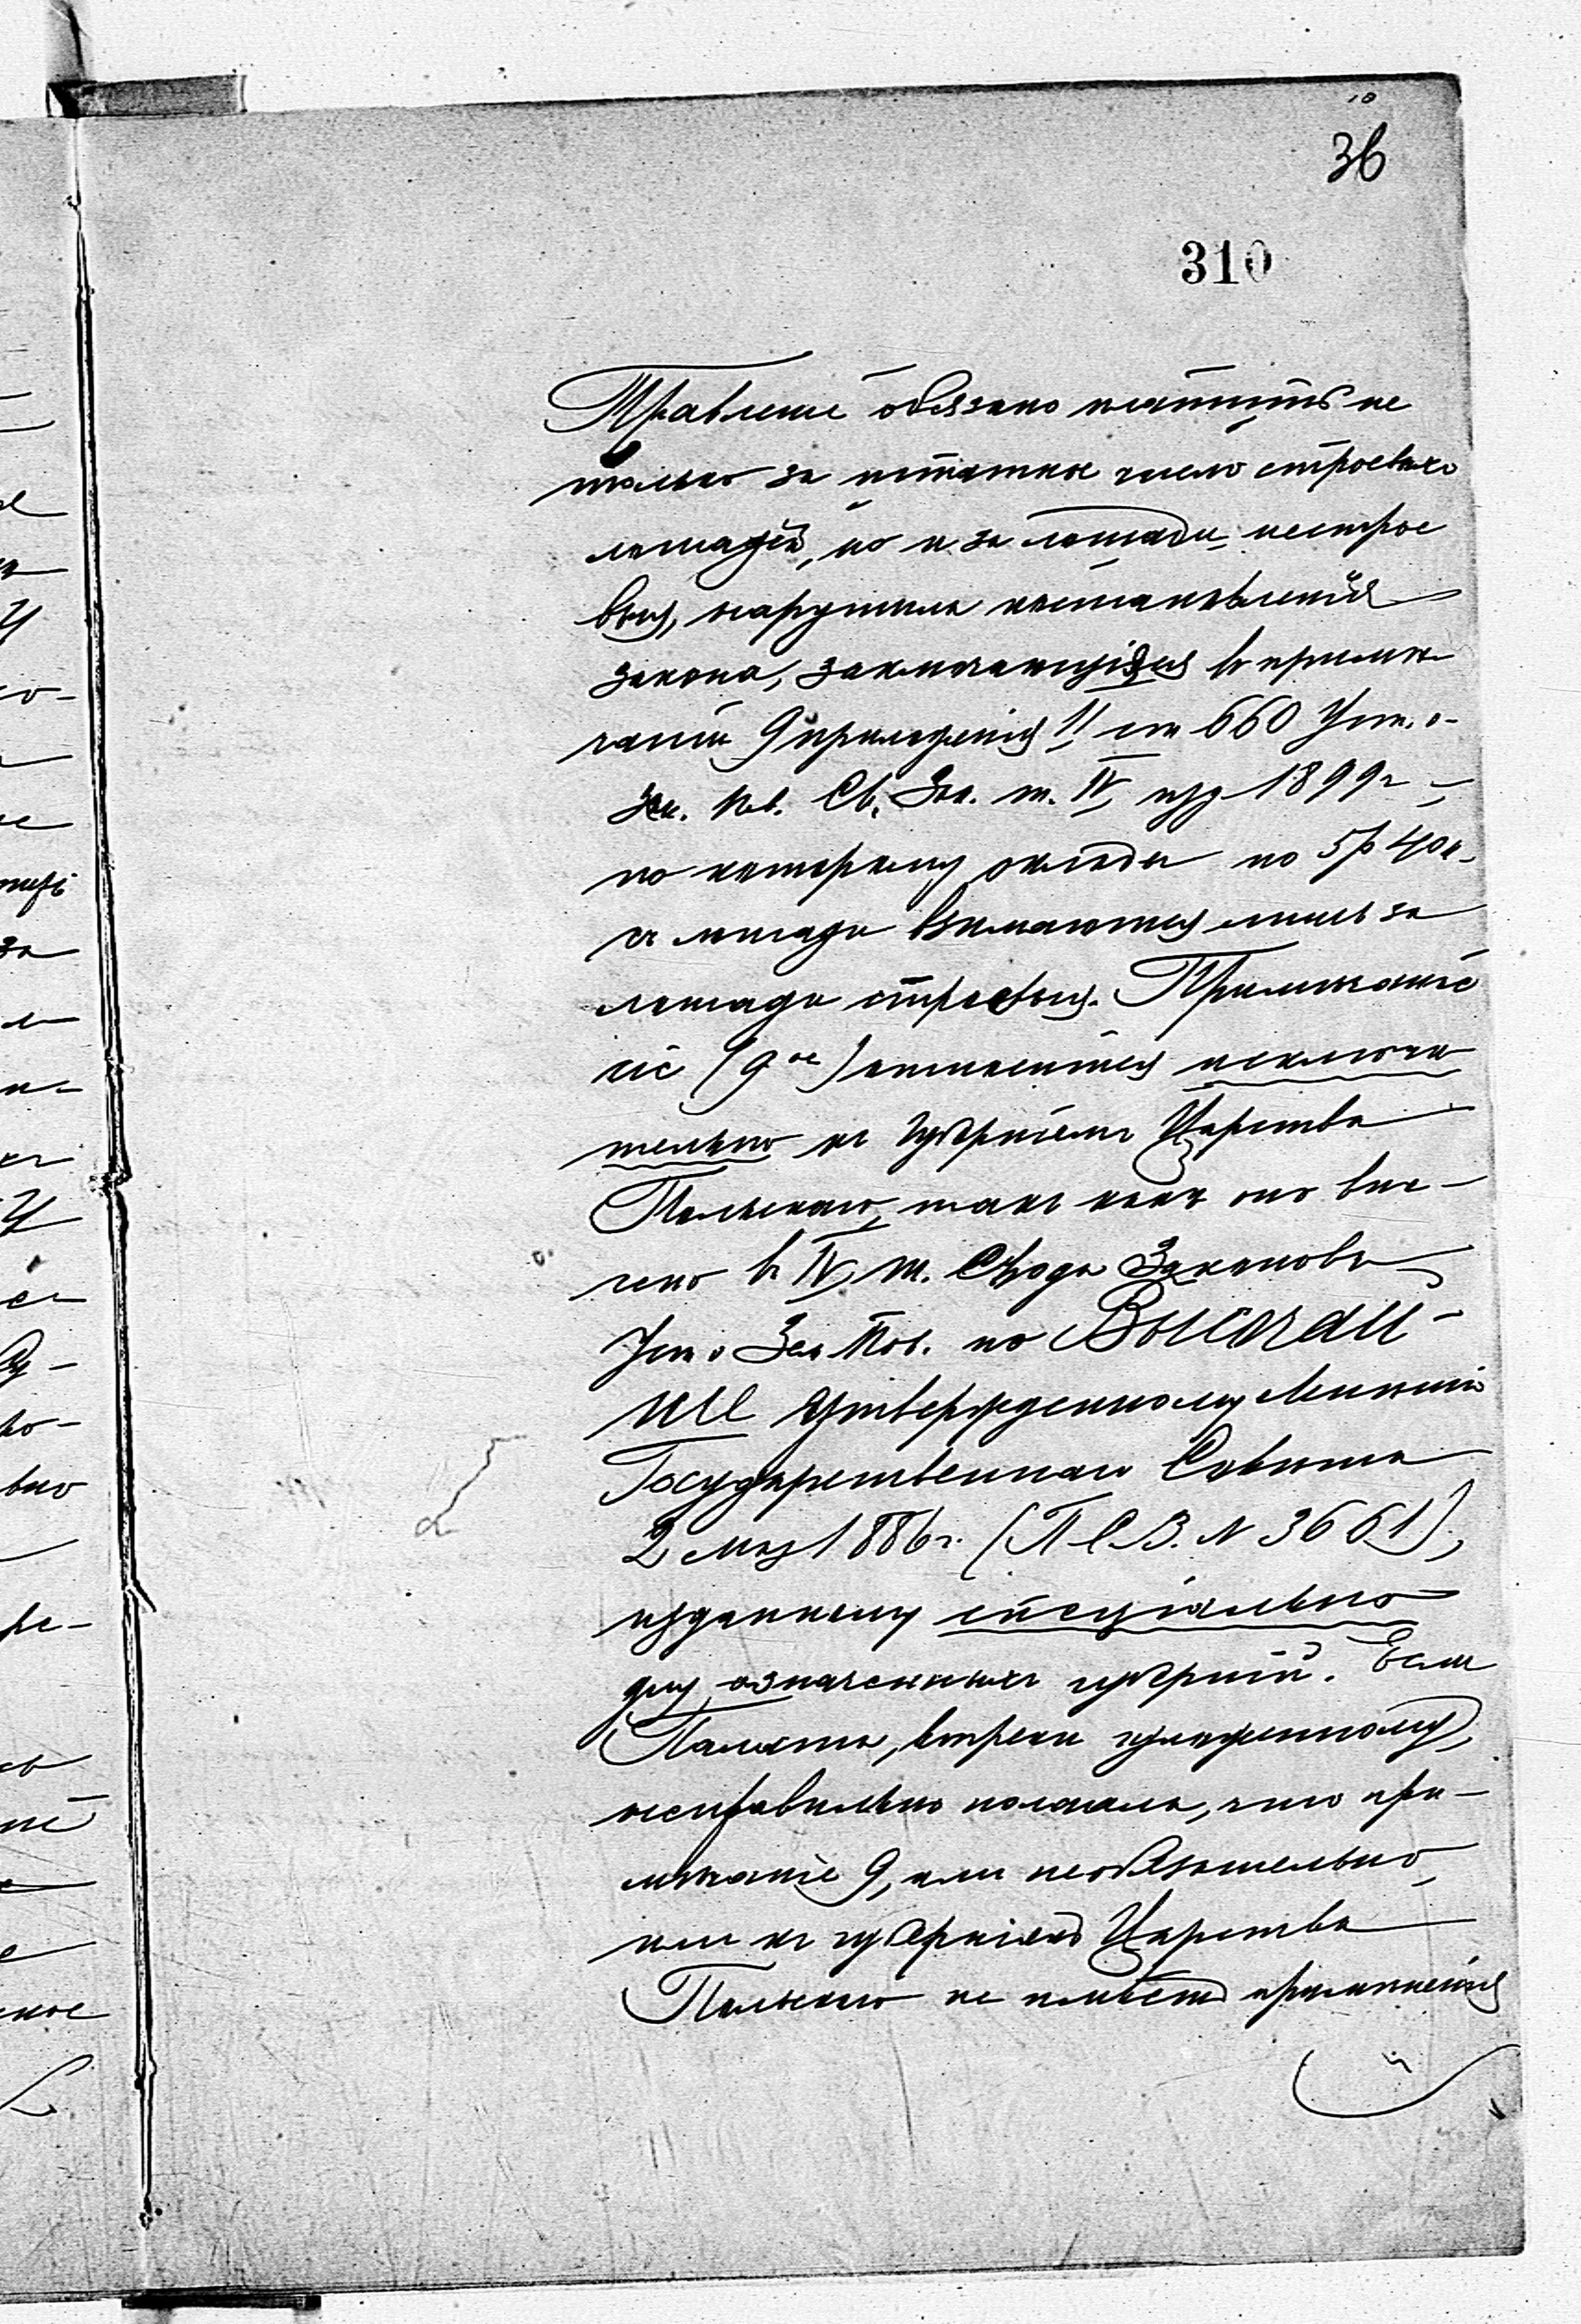 36
310
Правленіе обязано платить не
только за штатное число строевыхъ
лошадей, но и за лошади нестрое
выя, нарушила постановленія
закона, заключающіяся въ примѣ
чаніи 9 приложенія II ст 660 Уст. о
Зем. Пов. Св. Зак. т. IV, изд 1899 г –
по которому оклады по 5 р 40 к.
съ лошади взимаются лишь за
лошади строевыя. Примѣчаніе
сіе (9ое) относится исключи
тельно къ губерніямъ Царства
Польскаго, такъ какъ оно вне-
сено въ IV т. Свода Законовъ
Уст. о Зем Пов. по Высочай-
ше утвержденному Мнѣнію
Государственнаго Совѣта
2 мая 1886 г. (П С З. N 3661),
изданному спеціально
для означенныхъ губерній. Если
Палата, вопреки изложенному,
неправильно полагала, что при-
мѣчаніе 9, или необязательно,
или къ губерніямъ Царства
Польскаго не имѣетъ примѣненія